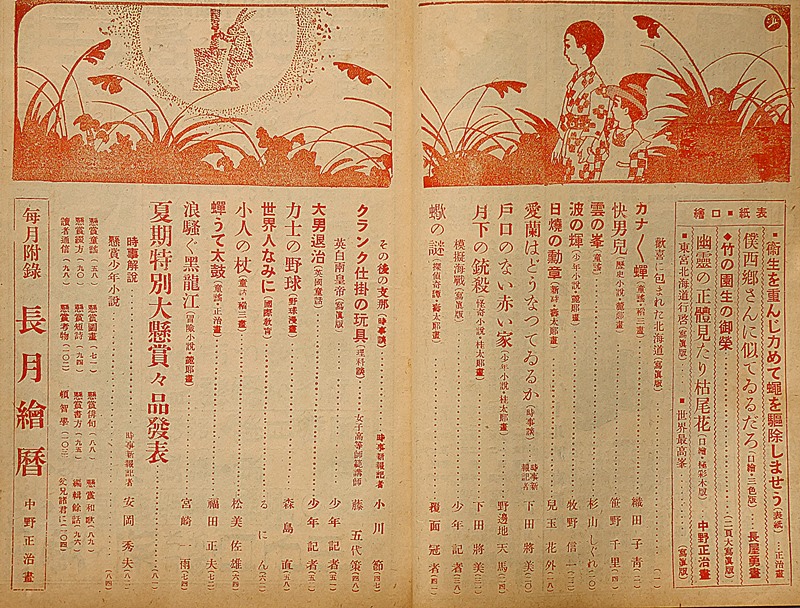 表紙■口繪
■衞生を重んじ力めて蠅を驅除しませう(表紙)…正治畫
僕西郷さんに似てゐるだろ(口繪・三色版)…長屋勇畫
◆竹の園生の御榮…(二頁大寫眞版)
幽靈の正體見たり枯尾花(口繪・極彩木版)…中野正治畫
■東宮北海道行啓(寫眞版) ■世界最高峯…(寫眞版)
歡喜に包まれた北海道(寫眞版)
カナ〱蟬(童謠・稲三畫)…織田子靑
快男兒(歷史小說・龍耶畫)…笹野千里
雲の峯(童謠)…杉山しぐれ
波の煇(少年小說・龍耶畫)…牧野信一
日燒の勳章(新詩・壽太郎畫)…兒玉花外
愛蘭はどうなつてゐるか(時事談)…時事新報記者 下田將美
戸口のない赤い家(少年小說・桂太郎畫)…野邊地天馬
月下の銃殺(怪奇小說・桂太郎畫)…下田將美
模擬海戰(寫眞版)…少年記者
蠍の謎(探偵奇譚・壽太郎畫)…覆面冠者
その後の支那(時事談)…時事新報記者 小川節
クランク仕掛の玩具(理科談)…女子高等師範講師 藤五代策
英白兩皇帝(寫眞版)…少年記者
大男退治(英國童話)…少年記者
力士の野球(野球漫畫)…森島直
世界人なみに(國際敎育)…るにん
小人の杖(童話・稲三畫)…松美佐雄
蟬うて太鼓(童謠・正治畫)…福田正夫
浪騷ぐ黑龍江(冒險小說・龍耶畫)…宮崎一雨
夏期特別大懸賞々品發表
時事解說…時事新報記者 安岡秀夫
懸賞少年小說…(八四)
懸賞童謠(五八) 懸賞圖畫(七一) 懸賞俳句(八八) 懸賞和歌(八八)
懸賞綴方(九〇) 懸賞短詩(九四) 懸賞書方(九五) 編輯餘話(九六)
讀者通信(九八) 懸賞考物(一〇二) 頓智學(一〇三) 父兄諸君に(一〇四)
每月附錄 長月繪曆 中野正治畫